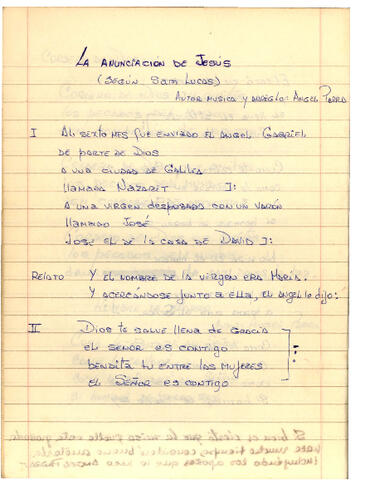 LA ANUNCIACIÓN DE JESÚS
(SEGÚN SAN LUCAS)
AUTOR MUSICA Y ARREGLO: ANGEL PARRA
I AL SEXTO MES FUE ENVIADO EL ANGEL GABRIEL
DE PARTE DE DIOS
A UNA CIUDAD DE GALILEA
LLAMADA NAZARET J:
A UNA VIRGEN DESPOSADA CON UN VARÓN
LLAMADO JOSÉ
JOSE EL DE LA CASA DE DAVID J:
RELATO Y EL NOMBRE DE LA VIRGEN ERA MARÍA.
Y ACERCÁNDOSE JUNTO A ELLA, EL ANGEL LE DIJO:
II DIOS TE SALVE LLENA DE GRACIA
EL SEÑOR ES CONTIGO
BENDITA TU ENTRE LAS MUJERES
EL SEÑOR ES CONTIGO